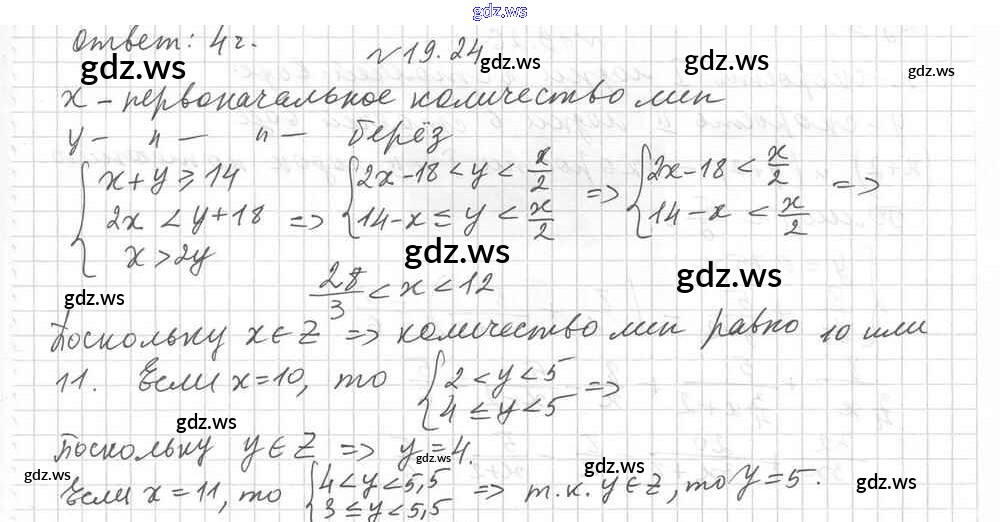 gdz.ws
Ответ: 4 г.
№ 19.24
gdz.ws
gdz.ws
x – первоначальное количество лип
y – " – " – берёз
{ x + y ≥ 14
2x < y + 18
x > 2y
=> { 2x - 18 < y < x/2
14 - x ≤ y < x/2
=> { 2x - 18 < x/2
14 - x < x/2
=>
gdz.ws
gdz.ws
gdz.ws
28/3 < x < 12
Поскольку x ∈ Z => количество лип равно 10 или
11. Если x = 10, то { 2 < y < 5
4 ≤ y < 5
=>
gdz.ws
Поскольку y ∈ Z => y = 4.
gdz.ws
gdz.ws
gdz.ws
gdz.ws
Если x = 11, то { 4 < y < 5,5
3 ≤ y < 5,5
=> т.к. y ∈ Z, то y = 5.